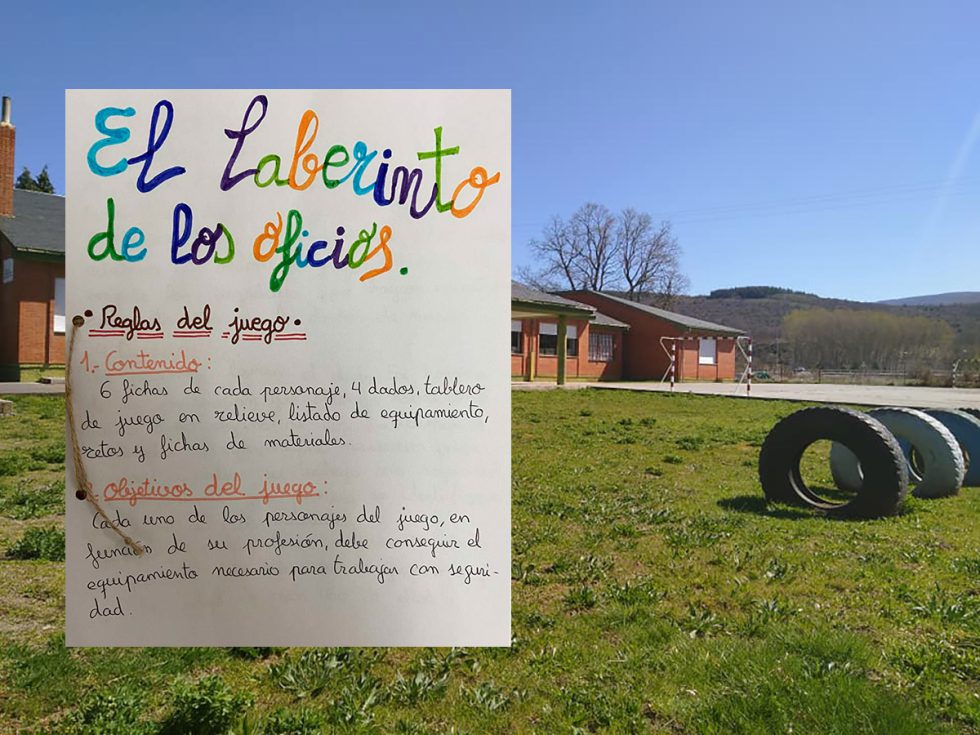 El Laberinto
de los oficios.
Reglas del juego.
1.- Contenido:
6 fichas de cada personaje, 4 dados, tablero
de juego en relieve, listado de equipamiento,
retos y fichas de materiales.
2. Objetivos del juego:
Cada uno de los personajes del juego, en
función de su profesión, debe conseguir el
equipamiento necesario para trabajar con seguri-
dad.